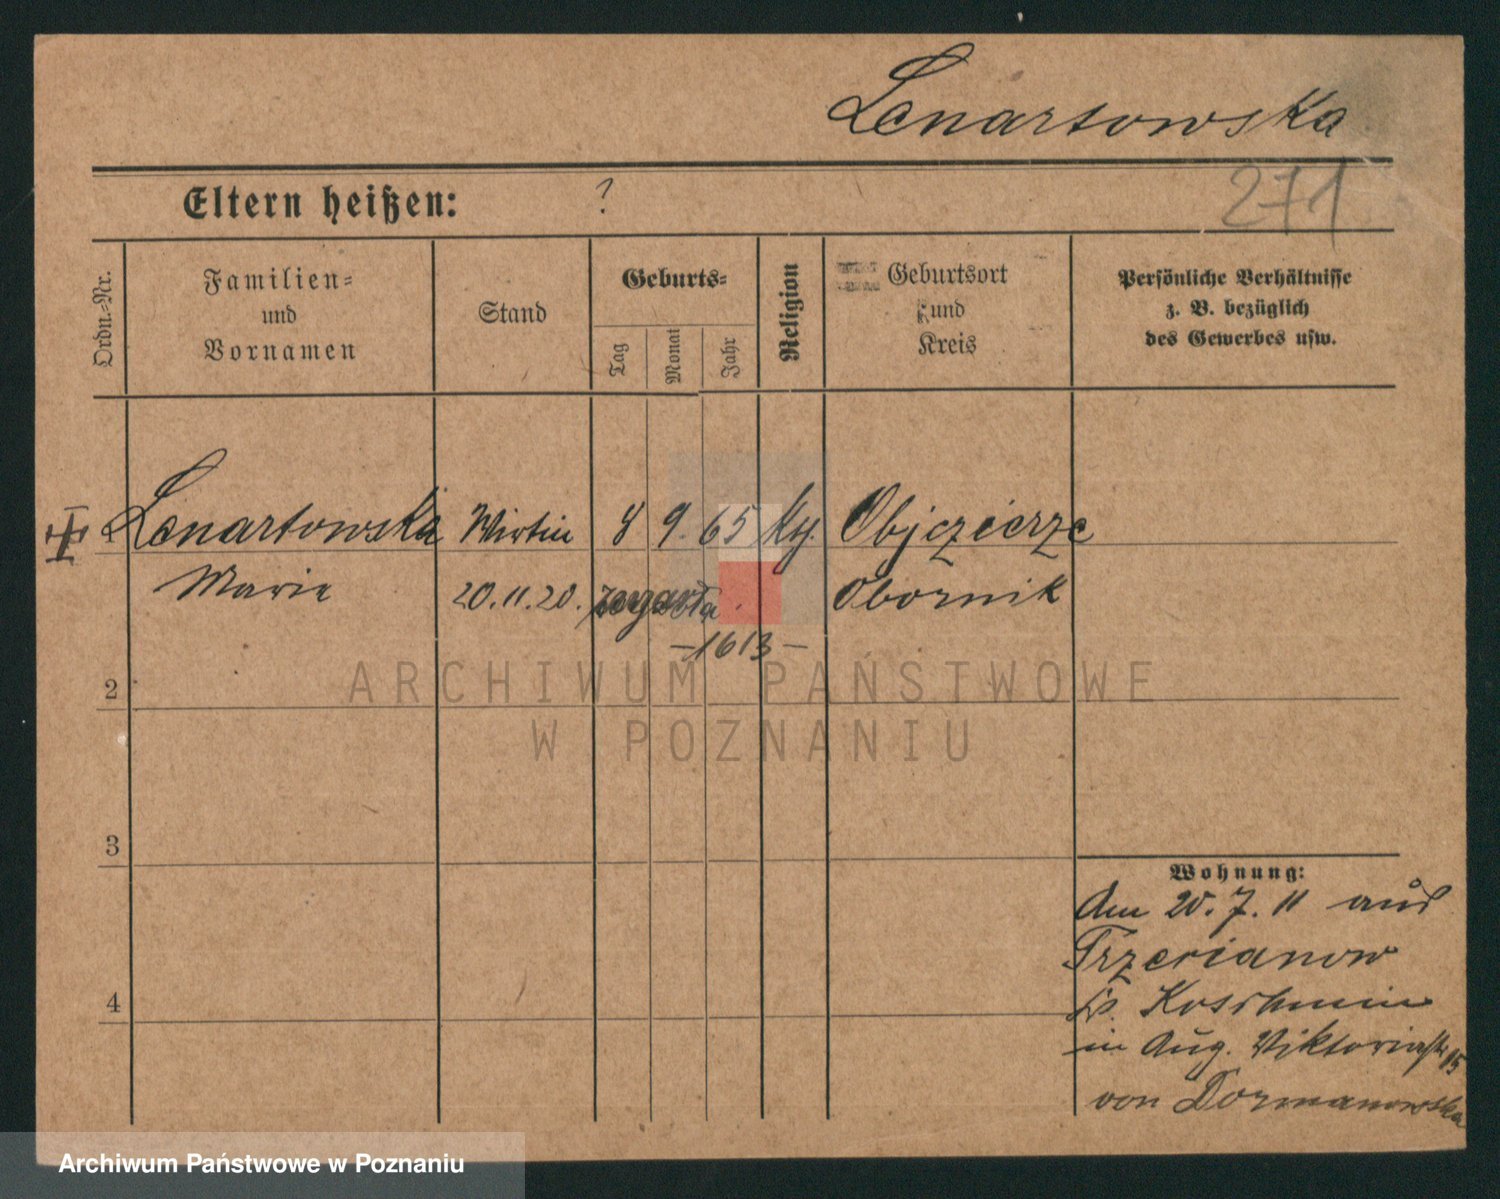 Lenartowska
Eltern heißen: ?
271
Ordn.-Nr.
Familien-
und
Vornamen
Stand
Geburts-
Tag
Monat
Jahr
Religion
Geburtsort
und
Kreis
Persönliche Verhältnisse
z. B. bezüglich
des Gewerbes usw.
Lenartowska Wirtin 8 9. 65 Obiezierze
Marie 20.11.20. Obornik
-1613-
2
3
4
Wohnung:
Am 20.7.11 aus
Koschmin
in Aug. Viktoriastr 15
von Dormanowska
ARCHIWUM PAŃSTWOWE
W POZNANIU
Archiwum Państwowe w Poznaniu